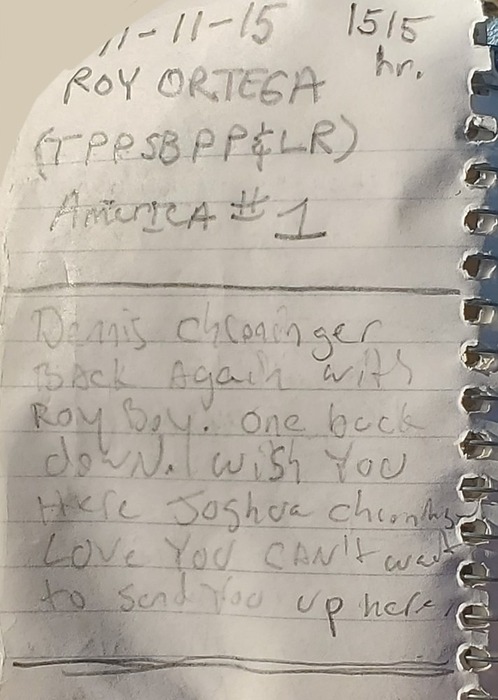 11-11-15 1515 hr.
ROY ORTEGA
(TPRSBPP&LR)
AmericA # 1
Dennis Chroninger
Back Again with
Roy Boy. one back
down. wish You
Here Joshua
Love You CAN't wait
to send You up here.